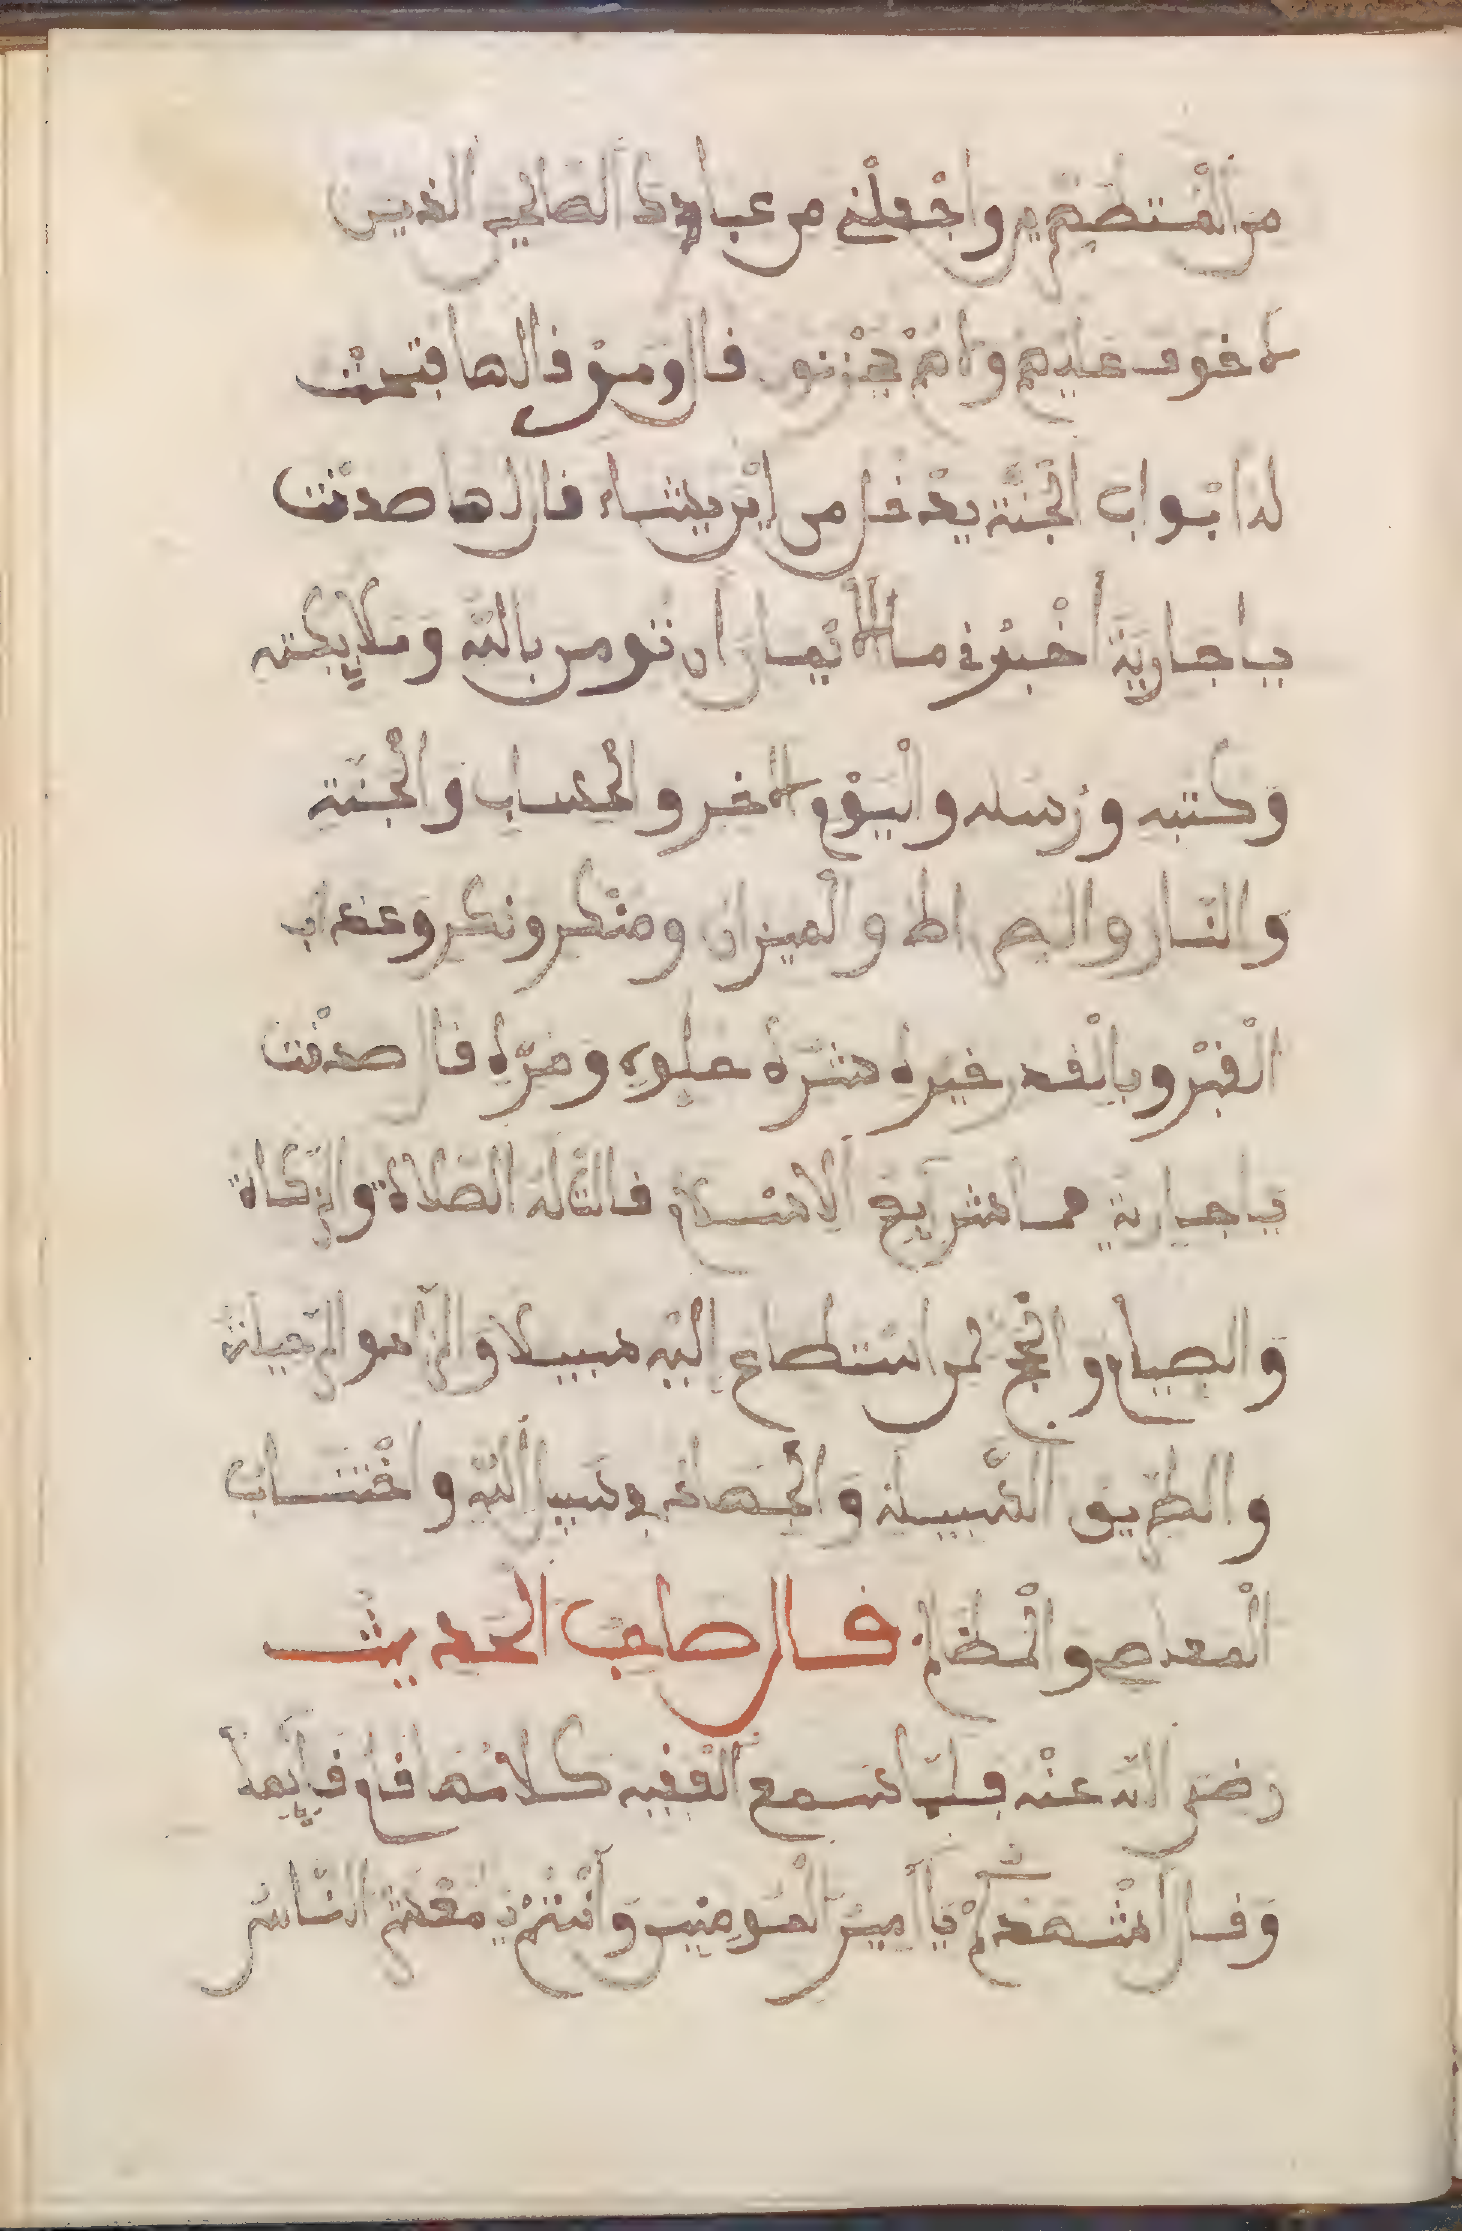 من المتطهرين واجعلني من عبادك الصالحين الذين
لا خوف عليهم ولا هم يحزنون قال ومن قالها فتحت
له ابواب الجنة يدخل من اين يشاء قال لها صدقت
يا جارية أخبرني ما الايمان ان تومن بالله وملايكته
وكتبه ورسله واليوم الاخر والحساب والجنة
والنار والصراط والميزان ومنكر ونكير وعذاب
القبر وبالقدر خيره وشره حلوه ومره قال صدقت
يا جارية فما شرايع الاسلام قالت له الصلاة والزكاة
والصيام والحج لمن استطاع اليه سبيلا والزاد والراحلة
والطريق السبيلة والجهاد في سبيل الله واجتناب
المعاصي والمظالم قال صاحب الحديث
رضي الله عنه فلما سمع الفقيه كلامها قام قايما
وقال اشهدكم يا امير المومنين وانتم يا معشر الناس